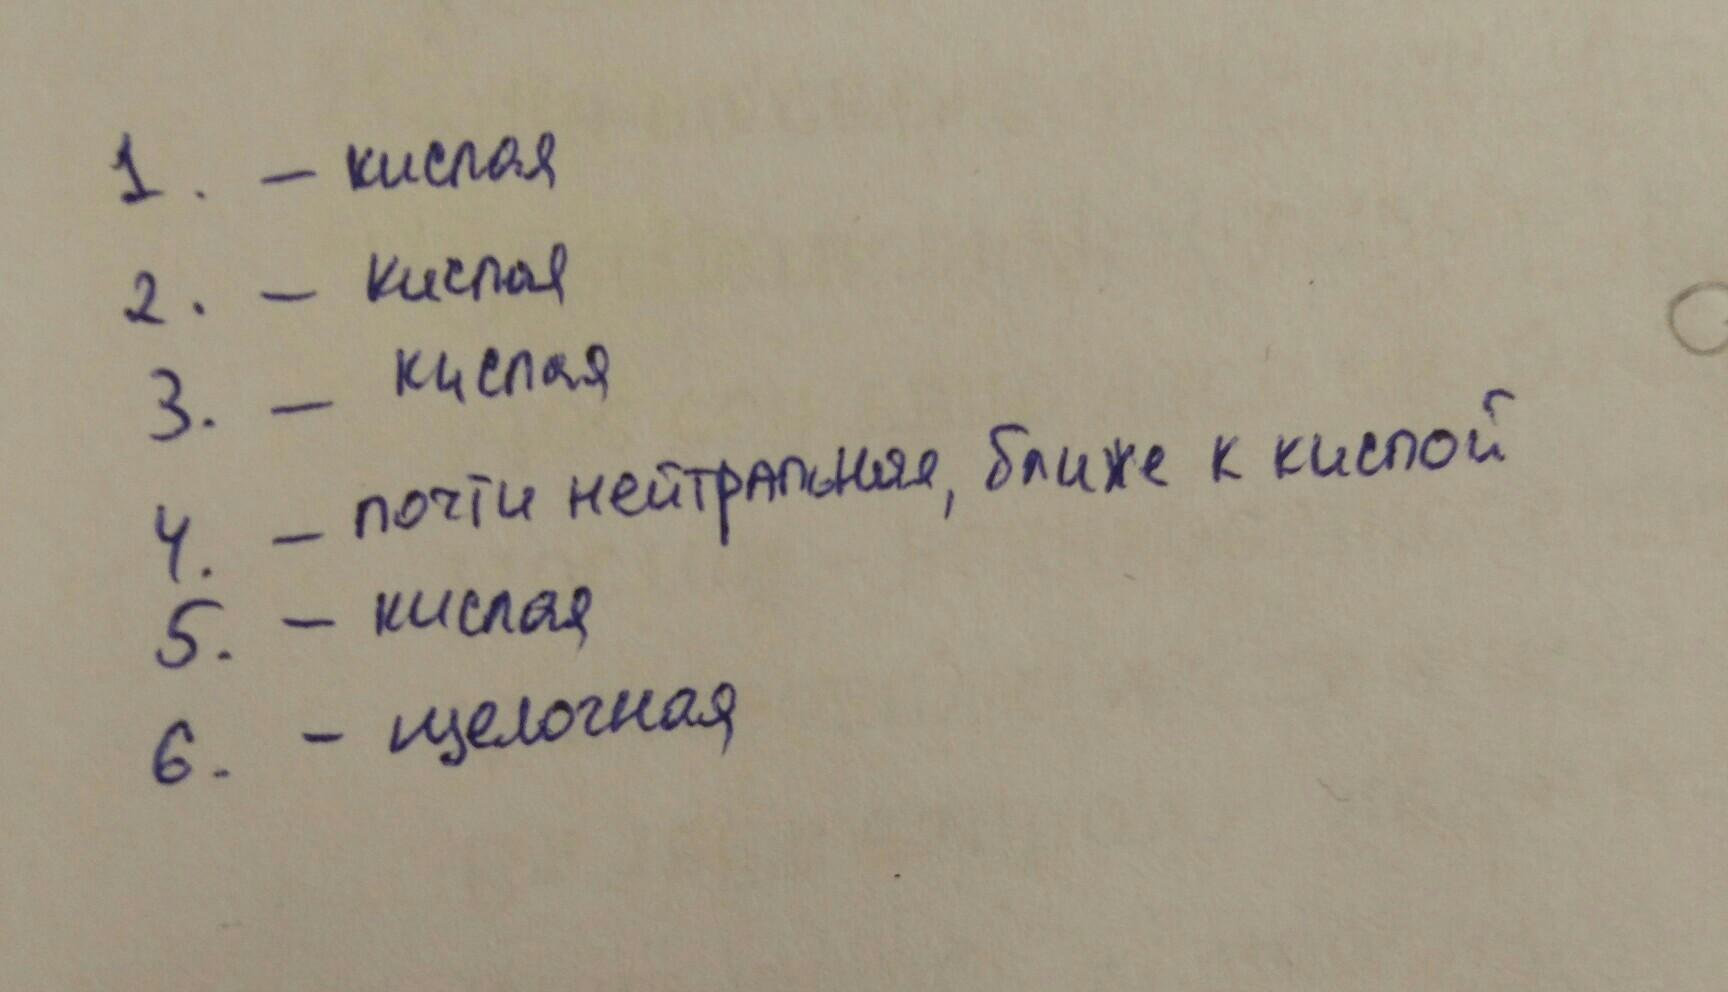 1. – кислая
2. – кислая
3. – кислая
4. – почти нейтральная, ближе к кислой
5. – кислая
6. – щелочная